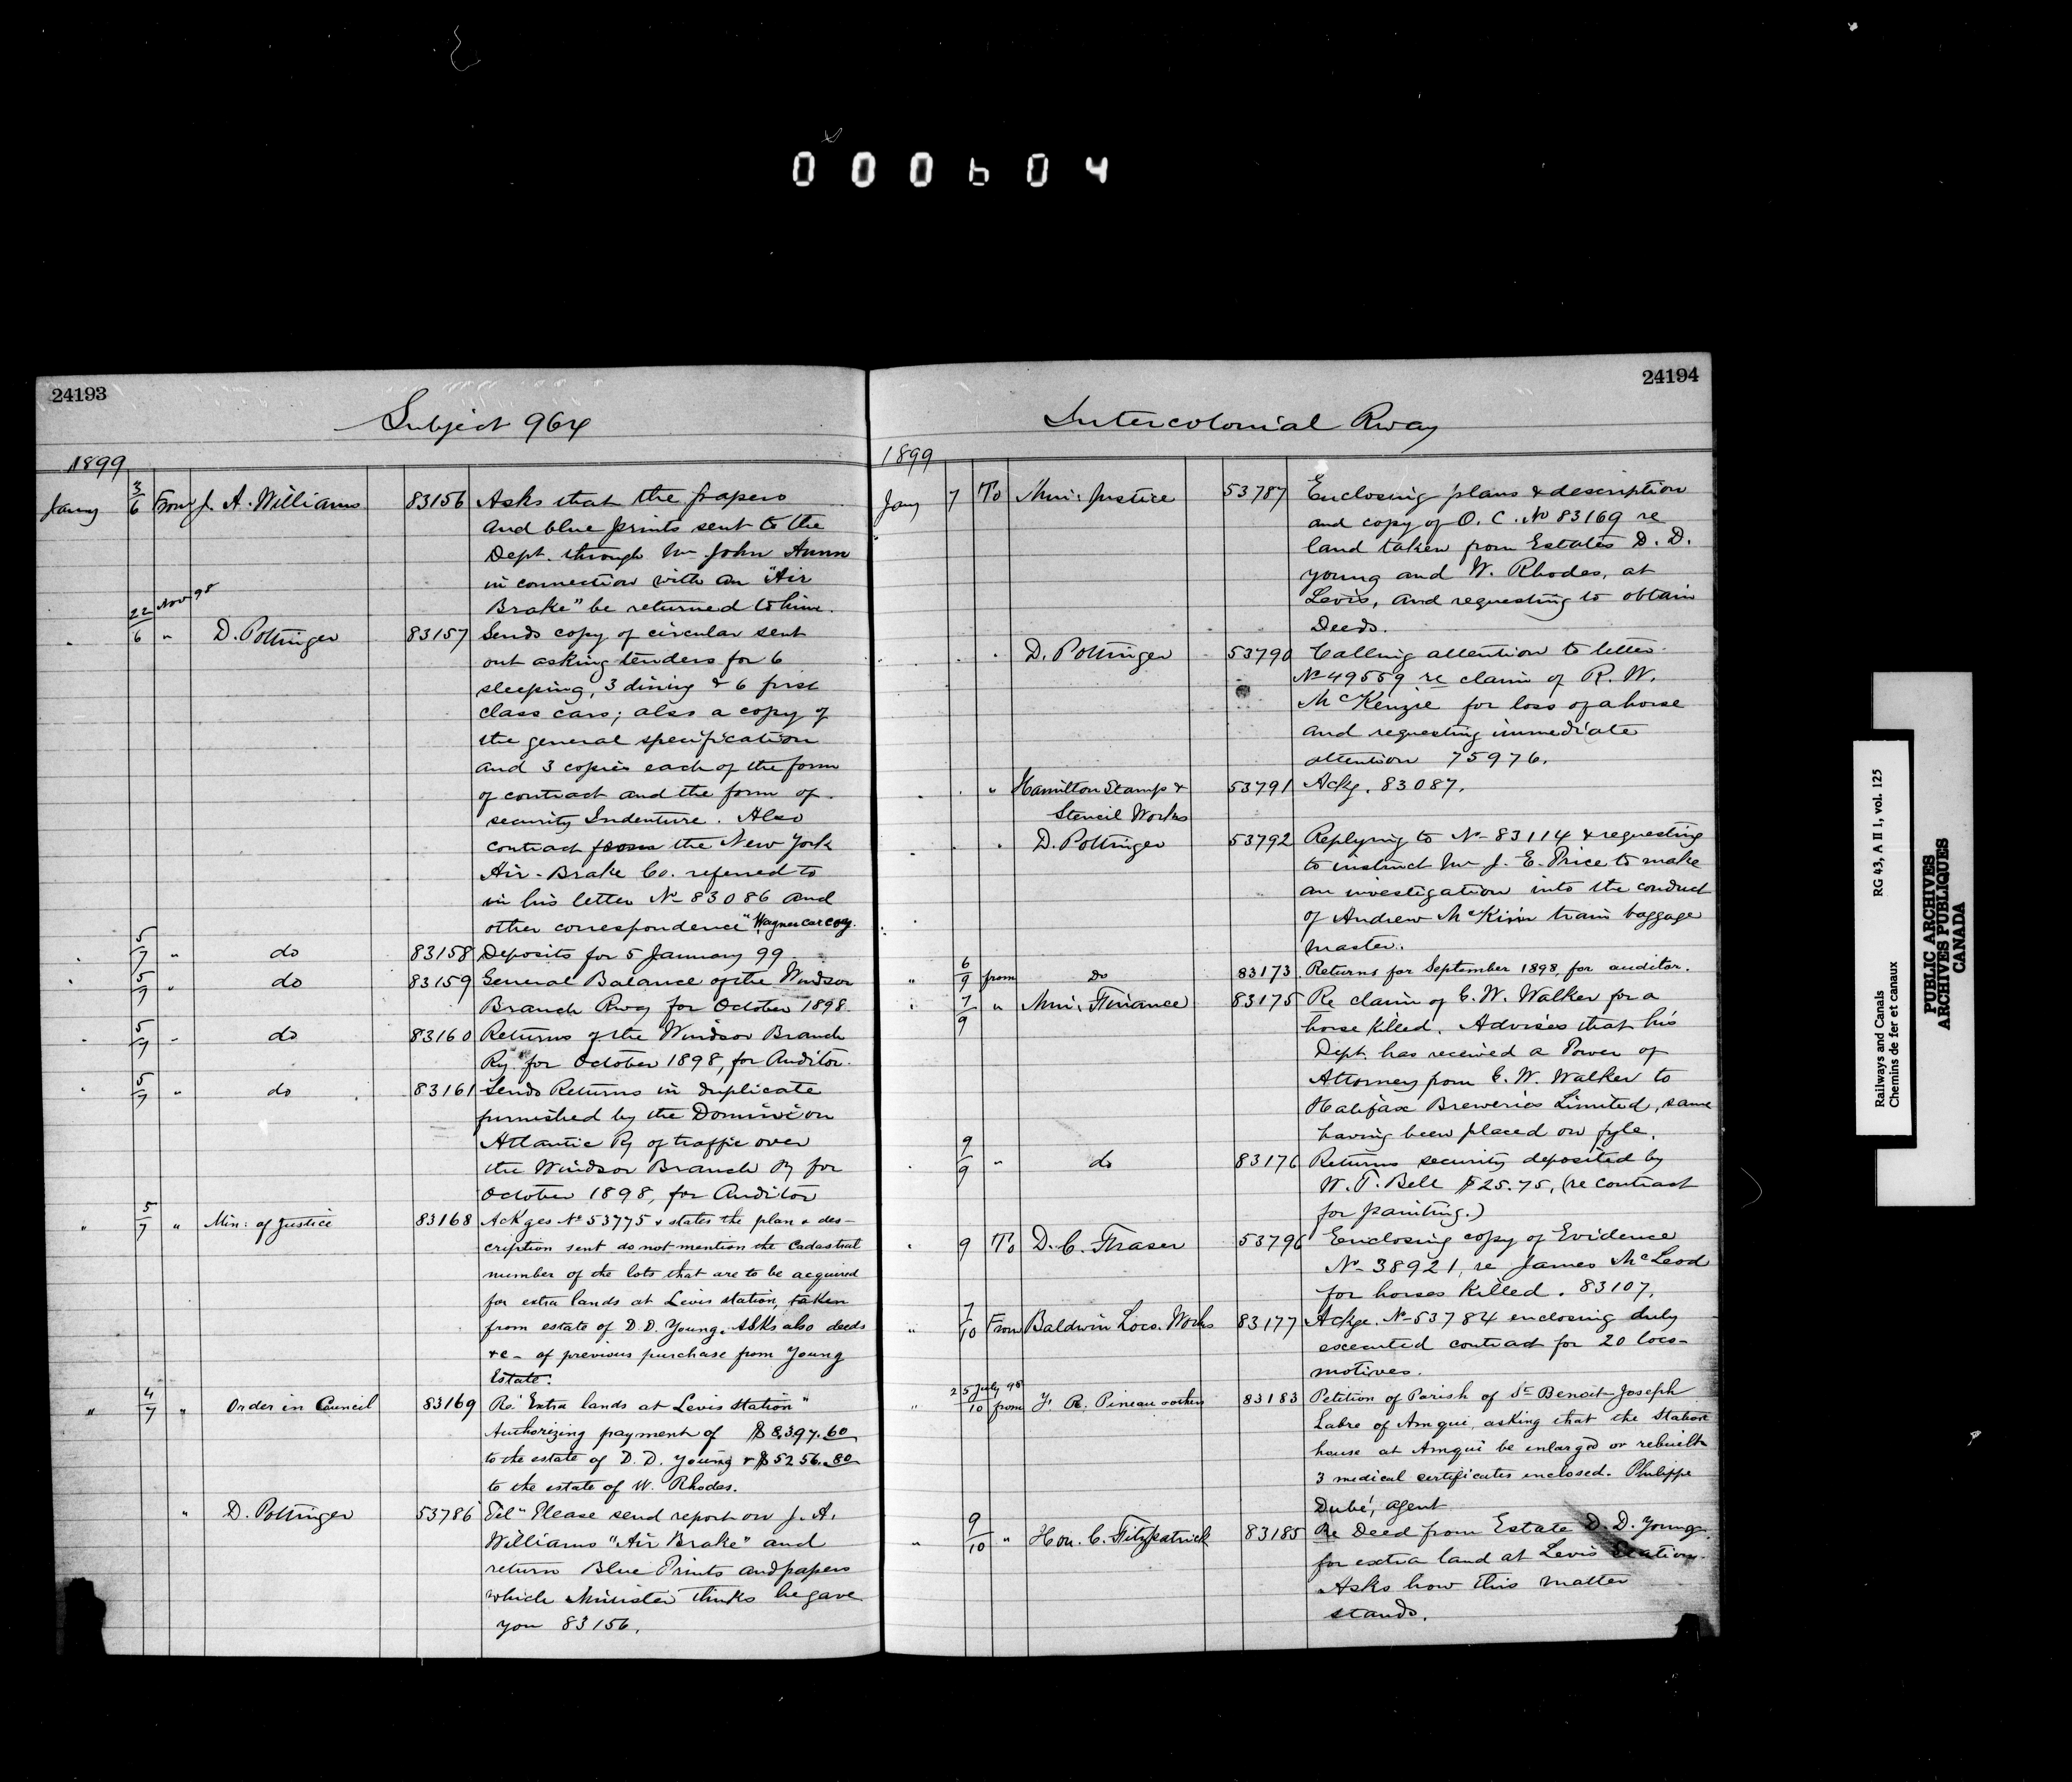 000604
24193
Subject 964
1899
Jany 3/6 From J. A. Williams 83156 Asks that the papers
and blue prints sent to the
Dept. through Mr John
in connection with an "Air
Brake" be returned to him.
22 Nov 98
" 6 " D. Pottinger 83157 Sends copy of circular sent
out asking tenders for 6
sleeping, 3 dining & 6 first
class cars; also a copy of
the general specification
and 3 copies each of the form
of contract and the form of
security Indenture. Also
contract from the New York
Air-Brake Co. referred to
in his letter No 83086 and
other correspondence "Wagner car coy.
" 5/7 " do 83158 Deposits for 5 January 99
" 5/7 " do 83159 General Balance of the Windsor
Branch Rway for October 1898.
" 5/7 " do 83160 Returns of the Windsor Branch
Ry. for October 1898, for Auditor.
" 5/7 " do 83161 Sends Returns in duplicate
furnished by the Dominion
Atlantic Ry of traffic over
the Windsor Branch Ry for
October 1898, for Auditor
" 5/7 " Min: of Justice 83168 Ackges No 53775 & states the plan & des-
cription sent do not mention the Cadastral
number of the lots that are to be acquired
for extra lands at Levis station, taken
from estate of D. D. Young. Asks also deeds
&c- of previous purchase from Young
Estate.
" 4/7 " Order in Council 83169 Re "Extra lands at Levis station"
Authorizing payment of $8,397.60
to the estate of D. D. Young & $5256.80
to the estate of W. Rhodes.
" D. Pottinger 53786 Tel "Please send report on J. A.
Williams "Air Brake" and
return Blue Prints and papers
which Minister thinks he gave
you 83156.
24194
Intercolonial Rway
1899
Jany 7 To Min: Justice 53787 Enclosing plans & description
and copy of O. C. No 83169 re
land taken from Estates D. D.
Young and W. Rhodes, at
Levis, and requesting to obtain
Deeds.
" " " D. Pottinger 53790 Calling attention to letter
No 49559 re claim of R. W.
McKenzie for loss of a horse
and requesting immediate
attention 75976.
" " " Hamilton Stamp & 53791 Ackg. 83087.
Stencil Works
" " D. Pottinger 53792 Replying to No 83114 & requesting
to instruct Mr J. E. Price to make
an investigation into the conduct
of Andrew McKim train baggage
master.
" 6/9 from Do 83173 Returns for September 1898, for auditor.
" 7/9 " Min: Finance 83175 Re claim of C. W. Walker for a
horse killed. Advises that his
Dept. has received a Power of
Attorney from C. W. Walker to
Halifax Breweries Limited, same
having been placed on fyle.
" 9/9 " do 83176 Returns security deposited by
W. T. Bell $25.75, (re contract
for painting.)
" 9 To D. C. Fraser 53796 Enclosing copy of Evidence
No 38921, re James McLeod
for horses killed. 83107.
" 7/10 From Baldwin Loco. Works 83177 Ackge. No 53784 enclosing duly
executed contract for 20 loco-
motives.
25 July 98
" 10 from R. Pineau others 83183 Petition of Parish of St Benoit-Joseph
Labre of Amqui, asking that the Station
house at Amqui be enlarged or rebuilt
3 medical certificates enclosed. Philippe
Dubé, agent
" 9/10 " Hon. C. Fitzpatrick 83185 Re Deed from Estate D. D. Young
for extra land at Levis Station.
Asks how this matter
stands.
Railways and Canals RG 43, A II 1, vol. 125
Chemins de fer et canaux
PUBLIC ARCHIVES
ARCHIVES PUBLIQUES
CANADA